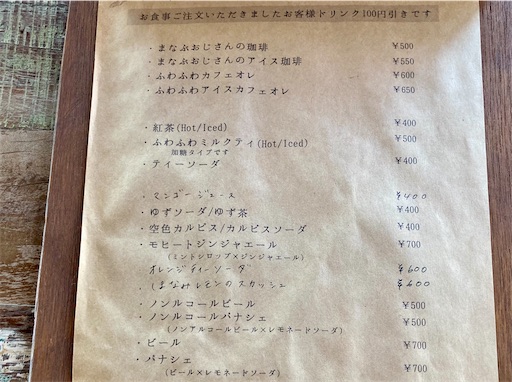 お食事ご注文いただきましたお客様ドリンク100円引きです
・まなぶおじさんの珈琲 ¥500
・まなぶおじさんのアイス珈琲 ¥550
・ふわふわカフェオレ ¥600
・ふわふわアイスカフェオレ ¥650
・紅茶(Hot/Iced) ¥400
・ふわふわミルクティ(Hot/Iced) ¥500
加糖タイプです
・ティーソーダ ¥400
・マンゴージュース ¥400
・ゆずソーダ/ゆず茶 ¥400
・空色カルピス/カルピスソーダ ¥400
・モヒートジンジャエール ¥700
(ミントシロップ×ジンジャエール)
オレンジティーソーダ ¥600
しまなみレモンのスカッシュ ¥600
・ノンルコールビール ¥500
・ノンルコールパナシェ ¥500
(ノンアルコールビール×レモネードソーダ)
・ビール ¥700
・パナシェ ¥700
(ビール×レモネードソーダ)